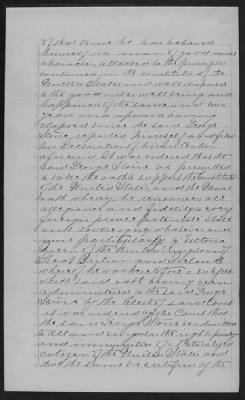 of that time he has behaved
himself as a man of good moral
character, attached to the principles
contained in the constitution of the
United States and well disposed
to the good order well being and
happiness of the same and two
years and upward having
elapsed since the said George
Stone reported himself and filed
his Declaration of his Intention
aforesaid It was ordered that the
said George Stone be permitted
to take the oath to support the Constitution
of the United States and the usual
oath whereby he renounces all
allegiance and fidelity to every
foreign prince potentate State
and sovereignty whatever and
more particularly to Victoria
Queen of the United Kingdom of
Great Britain and Ireland
whereof he was heretofore a subject
which said oath having been
administered to the said George
Stone by the Clerk of said Court
it was ordered by the Court that
the said George Stone be admitted
to all and singular the rights privileges
and immunities of a
citizen of the United States and
that the same be certified by the